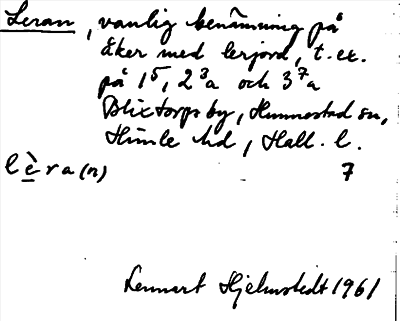 Leran, vanlig benämning på
åker med lerjord, t. ex.
på 1⁵, 2³a och 3⁷a
Blixtorps by, Hunnestad sn,
Himle hd, Hall. l.
lèra(n) 7
Lennart Hjelmstedt 1961